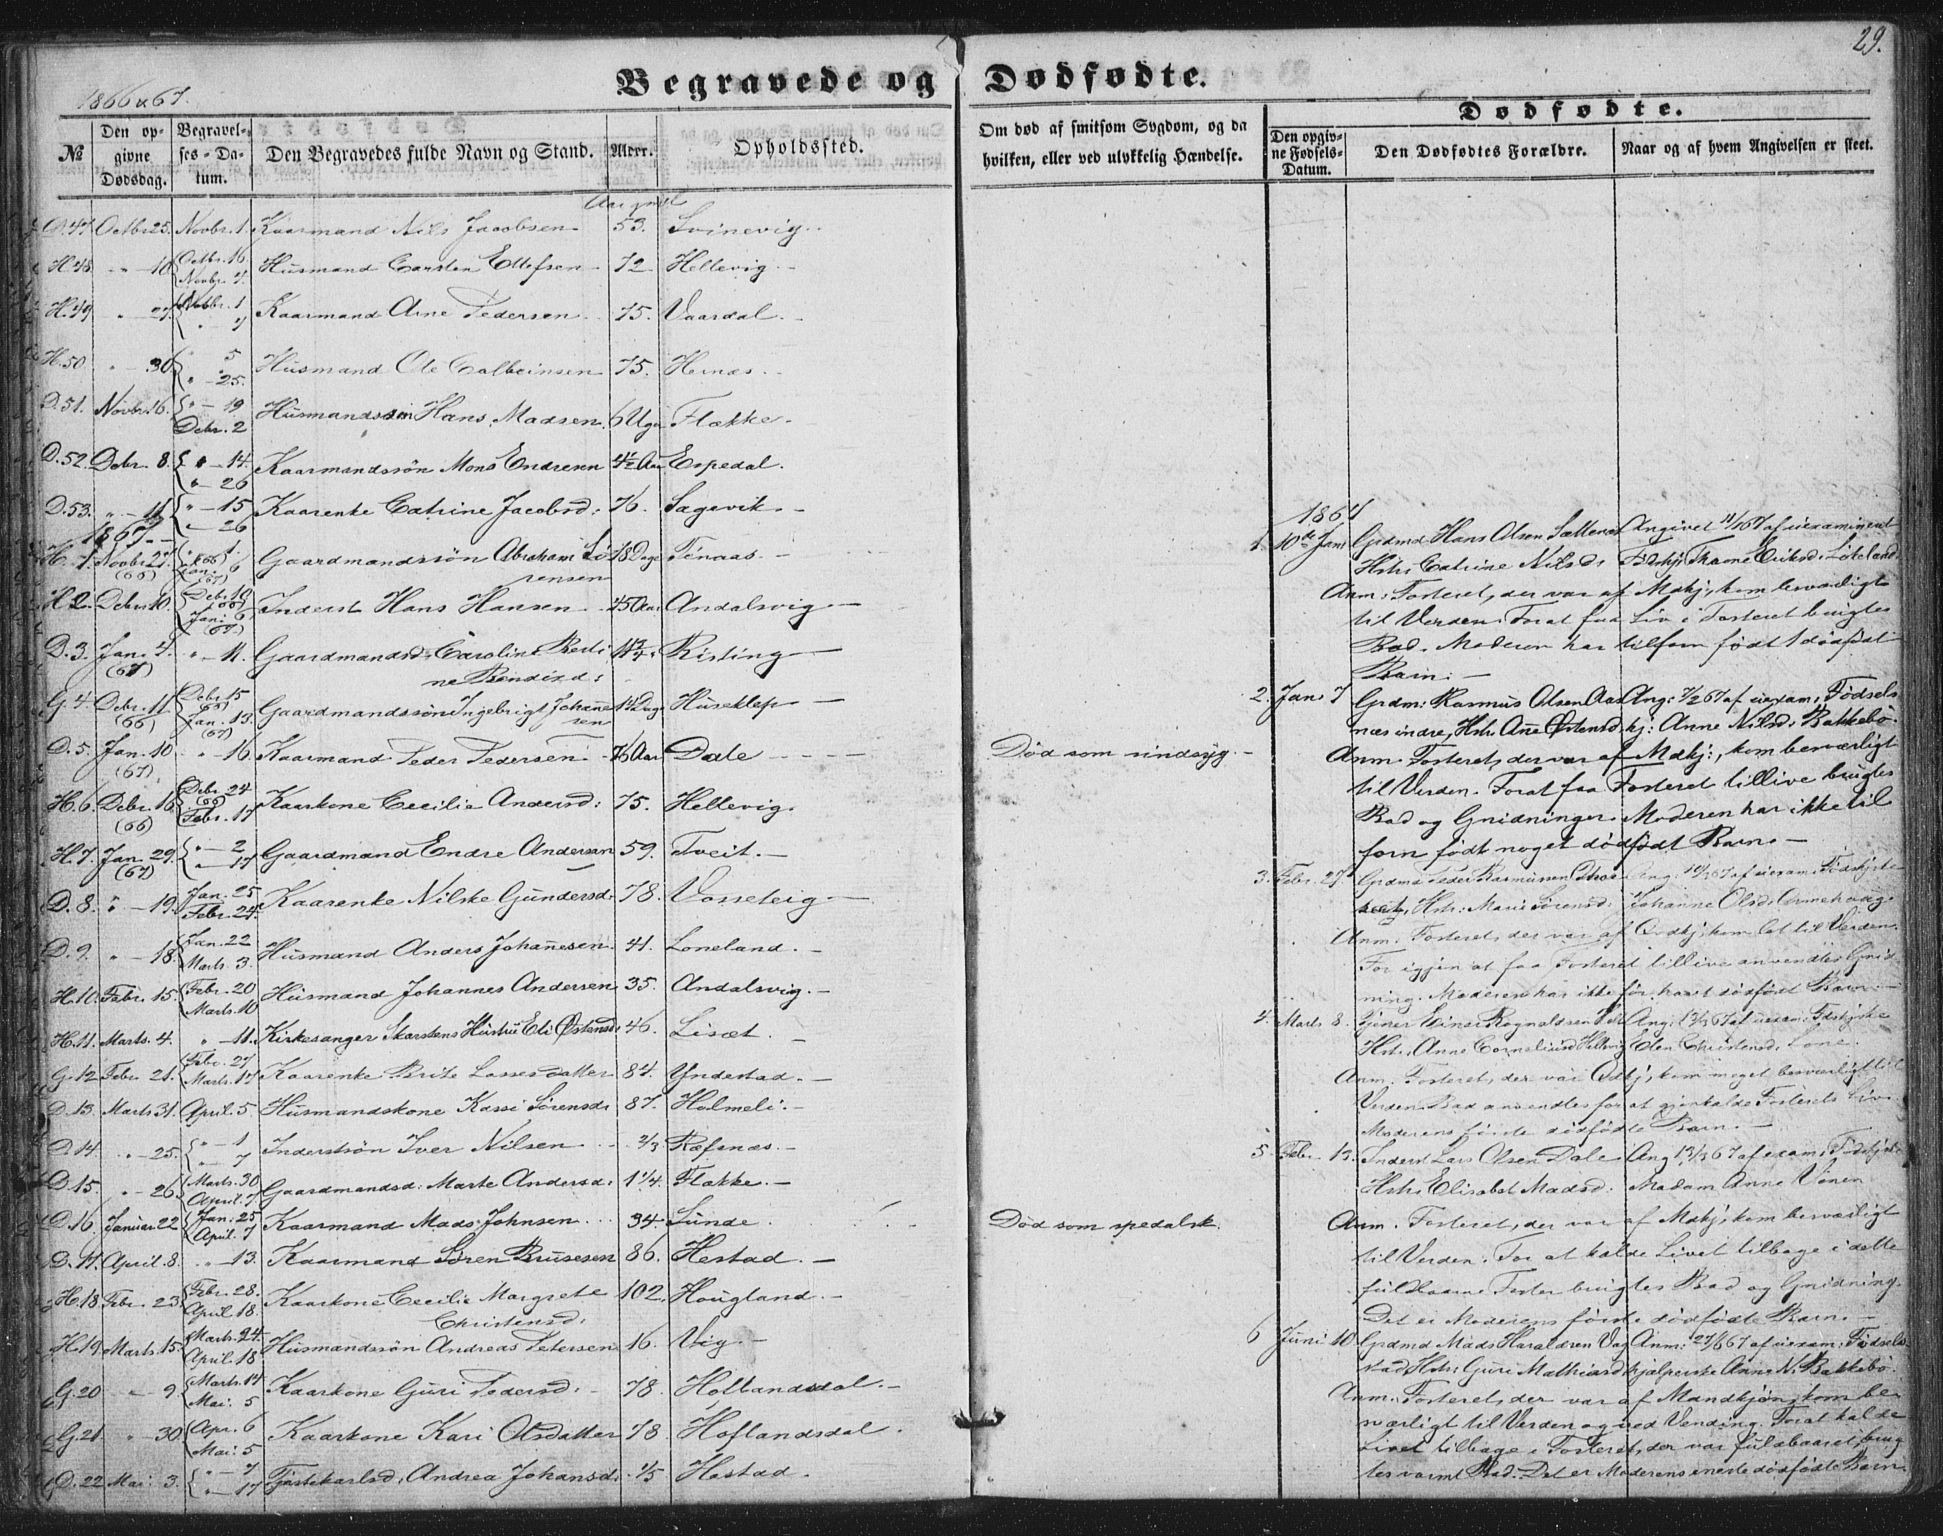 29.
1866 & 67.
Begravede og Dødfødte.
№
Den opgivne Dødsdag.
Begravelses-Datum.
Den Begravedes fulde Navn og Stand.
Alder.
Opholdssted.
Om død af smitsom Sygdom, og da hvilken, eller ved ulykkelig Hændelse.
Dødfødte.
Den opgivne Fødsels-Datum.
Den Dødfødtes Forældre.
Naar og af hvem Angivelsen er skeet.
D. 47 Octbr 25. Novbr. 1. Kaarmand Nils Jacobsen 53. Svinevig.
H. 48 " 18 Octbr. 16 Novbr. 7. Husmand Carsten Ellefsen 72 Hellevig.
H. 49 " 27. Novbr. 1 " 7 Kaarmand Arne Pedersen 75. Vaardal.
H. 50 " 30 " 5 " 25. Husmand Ole Colbeinsen 75. Hernæs.
D. 51. Novbr. 16. " 19 Debr. 2 Husmandssøn Hans Madsen. 6 Uger Flække.
D. 52. Debr. 8. " 14. " 26 Kaarmandssøn Mons Endresen 4½ Aar Espedal.
D. 53. " 11 " 15 " 26 Kaarenke Catrine Jacobsd: 76. Sagevik.
1867.
H. 1. Novbr. 27. (66) Gaardmandssøn Abraham Sörensen 18 Dage Tenaas.
H. 2. Debr. 10. Debr. 19 (66) Jan: 6 (67) Inderst Hans Hansen 45 Aar Andalsvig
D. 3. Jan. 4. (67) " 11. Gaardmandsd: Caroline Bertine Bendixd: Risting
G. 4. Debr. 11 (66) Debr. 15 (66) Jan. 13. (67) Gaardmandssøn Ingebrigt Johannesen 14 Dage Huseklep
D. 5. Jan. 10 (67) " 16. Kaarmand Peder Pedersen 76 Aar Dale Død som sindssyg.
H. 6. Debr. 16 (66) Debr. 24 (66) Febr. 17 Kaarkone Cecilie Andersd: 75. Hellevig.
H. 7. Jan. 29. (67) " 2 " 17 Gaardmand Endre Andersen 59. Tveit.
D. 8. " 19. Jan. 25 Febr. 24. Kaarenke Nilske Gundersd: 78. Vosseteig
D. 9. " 18. Jan. 22 Marts. 3. Husmand Anders Johanesen. 41. Loneland.
H. 10. Febr. 15. Febr. 20 Marts. 10 Husmand Johannes Andersen 35. Andalsvig.
H. 11. Marts. 4. " 11. Kirkesanger Skarstens Hustru Eli Østensd: 46. Lisæt.
G. 12 Febr. 21. Febr. 27 Marts. 17 Kaarenke Brite Lassesdatter 84. Yndestad.
D. 13. Marts 31. April. 5 Husmandskone Kassi Sørensd: 87. Holmeli.
D. 14 " 25. " 1 " 7 Inderstsøn Iver Nilsen 2/3 Ræfsnæs.
D. 15. " 26. Marts. 30 April. 7 Gaardmandsd: Marte Andersd: 1¼. Flække.
D. 16. Januar 22 Jan. 25 April. 7 Kaarmand Mads Johnsen 34. Sunde. Død som spedalsk.
D. 17. April. 8. " 13. Kaarmand Sören Brusesen 86. Hestad.
H. 18. Febr. 23. Febr. 28. April. 18. Kaarkone Cecilie Margrete Christensd: 102. Hougland.
H. 19. Marts. 15. Marts. 24. April. 18 Husmandssøn Andreas Petersen 16. Vig.
G. 20 " 9. Marts. 14 Mai. 5 Kaarkone Guri Pedersd: 78. Hollandsdal.
G. 21. " 30. Apr. 6 Mai. 5 Kaarkone Kari Olsdatter 78. Hoflandsdal.
D. 22 Mai: 3. " 7 " 17 Tjistekarlsd: Andrea Johansd: 1/5 Hestad.
1867
1. 10de Jan: Grdmd Hans Olsen Angivet 11/1 67 af uexamineret
Hstr. Catrine Nilsd:
Anm: Fosteret, der var af Mdkj:, kom besværligt
til Verden. Forat faa Liv i Fosteret brugtes
Bad. Moderen har tilforn født 1 dødfødt
Barn.
2. Jan. 7 Grdm: Rasmus Olsen Ang: 7/2 67 af uexam: Fødsels
næs indre, Hstr: Ane Østensd kj: Anne Nilsd: Bakkebø.
Anm. Fosteret, der var af Mdkj:, kom besværligt
til Verden. Forat faa Fosteret tillive brugtes
Bad og Gnidninger. Moderen har ikke til
forn født noget dødfødt Barn.
3. Febr. 27. Grdmd Peder Rasmussen
Hstr: Marie Sørensd: Johanne Olsd:
Anm. Fosteret, der var af Qvdkj:, kom let til Verden.
For igjen at faa Fosteret tillive anvendtes Gnid
ning. Moderen har ikke för havt dödfödt Barn.
4. Marts 8. Einar Rognaldsen Ang: 13/3 67 af uexam: Fødskjske
Hstr: Anne Corneliusd Hellevig Elen Christensd: Lone.
Anm. Fosteret, der var Qvdkj:, kom meget besværligt til
Verden. Bad anvendtes for at gjenkalde Fosterets Liv.
Moderens förste dødfødte Barn.
5. Febr. 13. Inderst Lars Olsen Dale Ang. 13/3 67 af exam: Fødskjske
Hstr. Elisabet Madsd: Madam Anne Vinen
Anm. Fosteret, der var af Mdkj:, kom besværligt
til Verden. For at kalde Livet tilbage i dette
fuldbaarne Foster brugtes Bad og Gnidning.
Det er Moderens förste dødfødte Barn.
6 Juni 10 Grdmd Mads Haraldsen Anm: 27/6 67 af uexam: Fødsels
stad Hstr: Guri Mathiasd hjælperske Anne N. Bakkebø.
Anm: Fosteret, der var af Mandkjøn, kom be
sværligt til Verden og ved Vending. Forat kalde
Livet tilbage i Fosteret, der var fuldbaaret, brug
tes varmt Bad. Det er Moderens eneste dødfødte Barn.